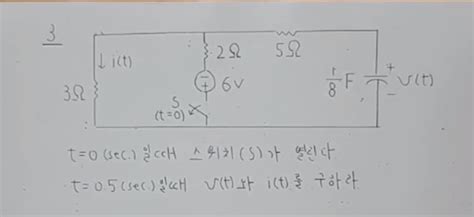 3
i(t)
2Ω
5Ω
3Ω
6V
S
(t=0)
1/8 F
+
v(t)
−
t=0 (sec.) 일때 스위치(S)가 열린다
t=0.5 (sec.) 일때 v(t)와 i(t)를 구하라